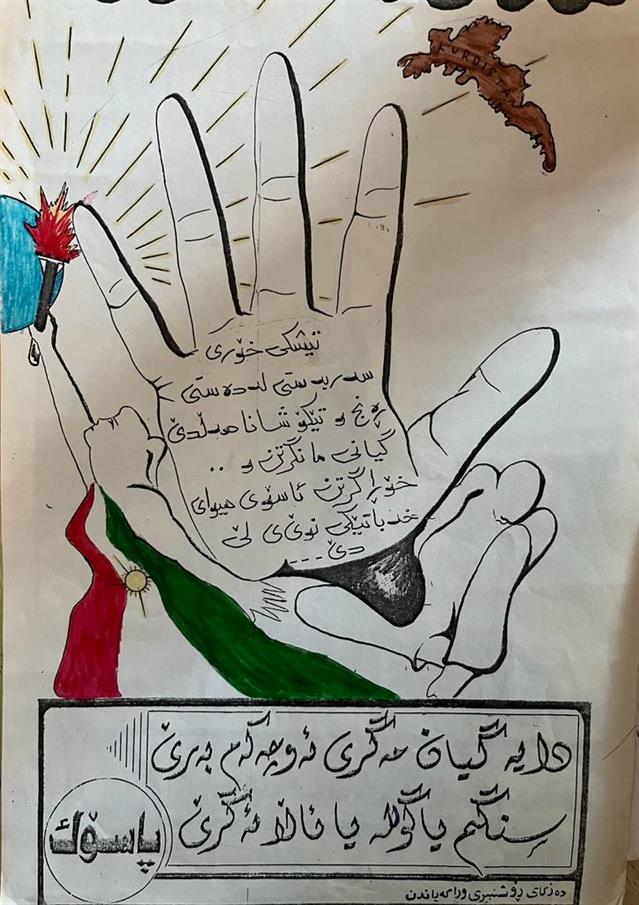 KURDISTA
تیشکی خۆری
سەربەستی لەدەستی
ڕەنج و تێکۆشانا هەڵدێ
گیانی مانگرتن و ..
خۆڕاگرتن ئاسۆی هیوای
خەباتێکی نوێ ی لێ
دێ ....
دایە گیان مەگری ئەوچەکەم بەرێ
سنگم یاگولە یا ئاڵا ئەگرێ
پاسۆک
دەزگای ڕۆشنبیری وراگەیاندن